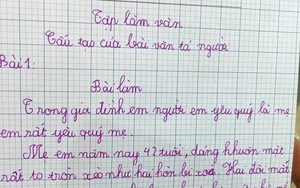 Tập làm văn
Cấu tạo của bài văn tả người
Bài 1:
Bài làm
Trong gia đình em người em yêu quý là mẹ
em rất yêu quý mẹ.
Mẹ em năm nay 42 tuổi, dáng khuôn mặt
rất to tròn xoe như hai hòn bi Hai đôi mắt